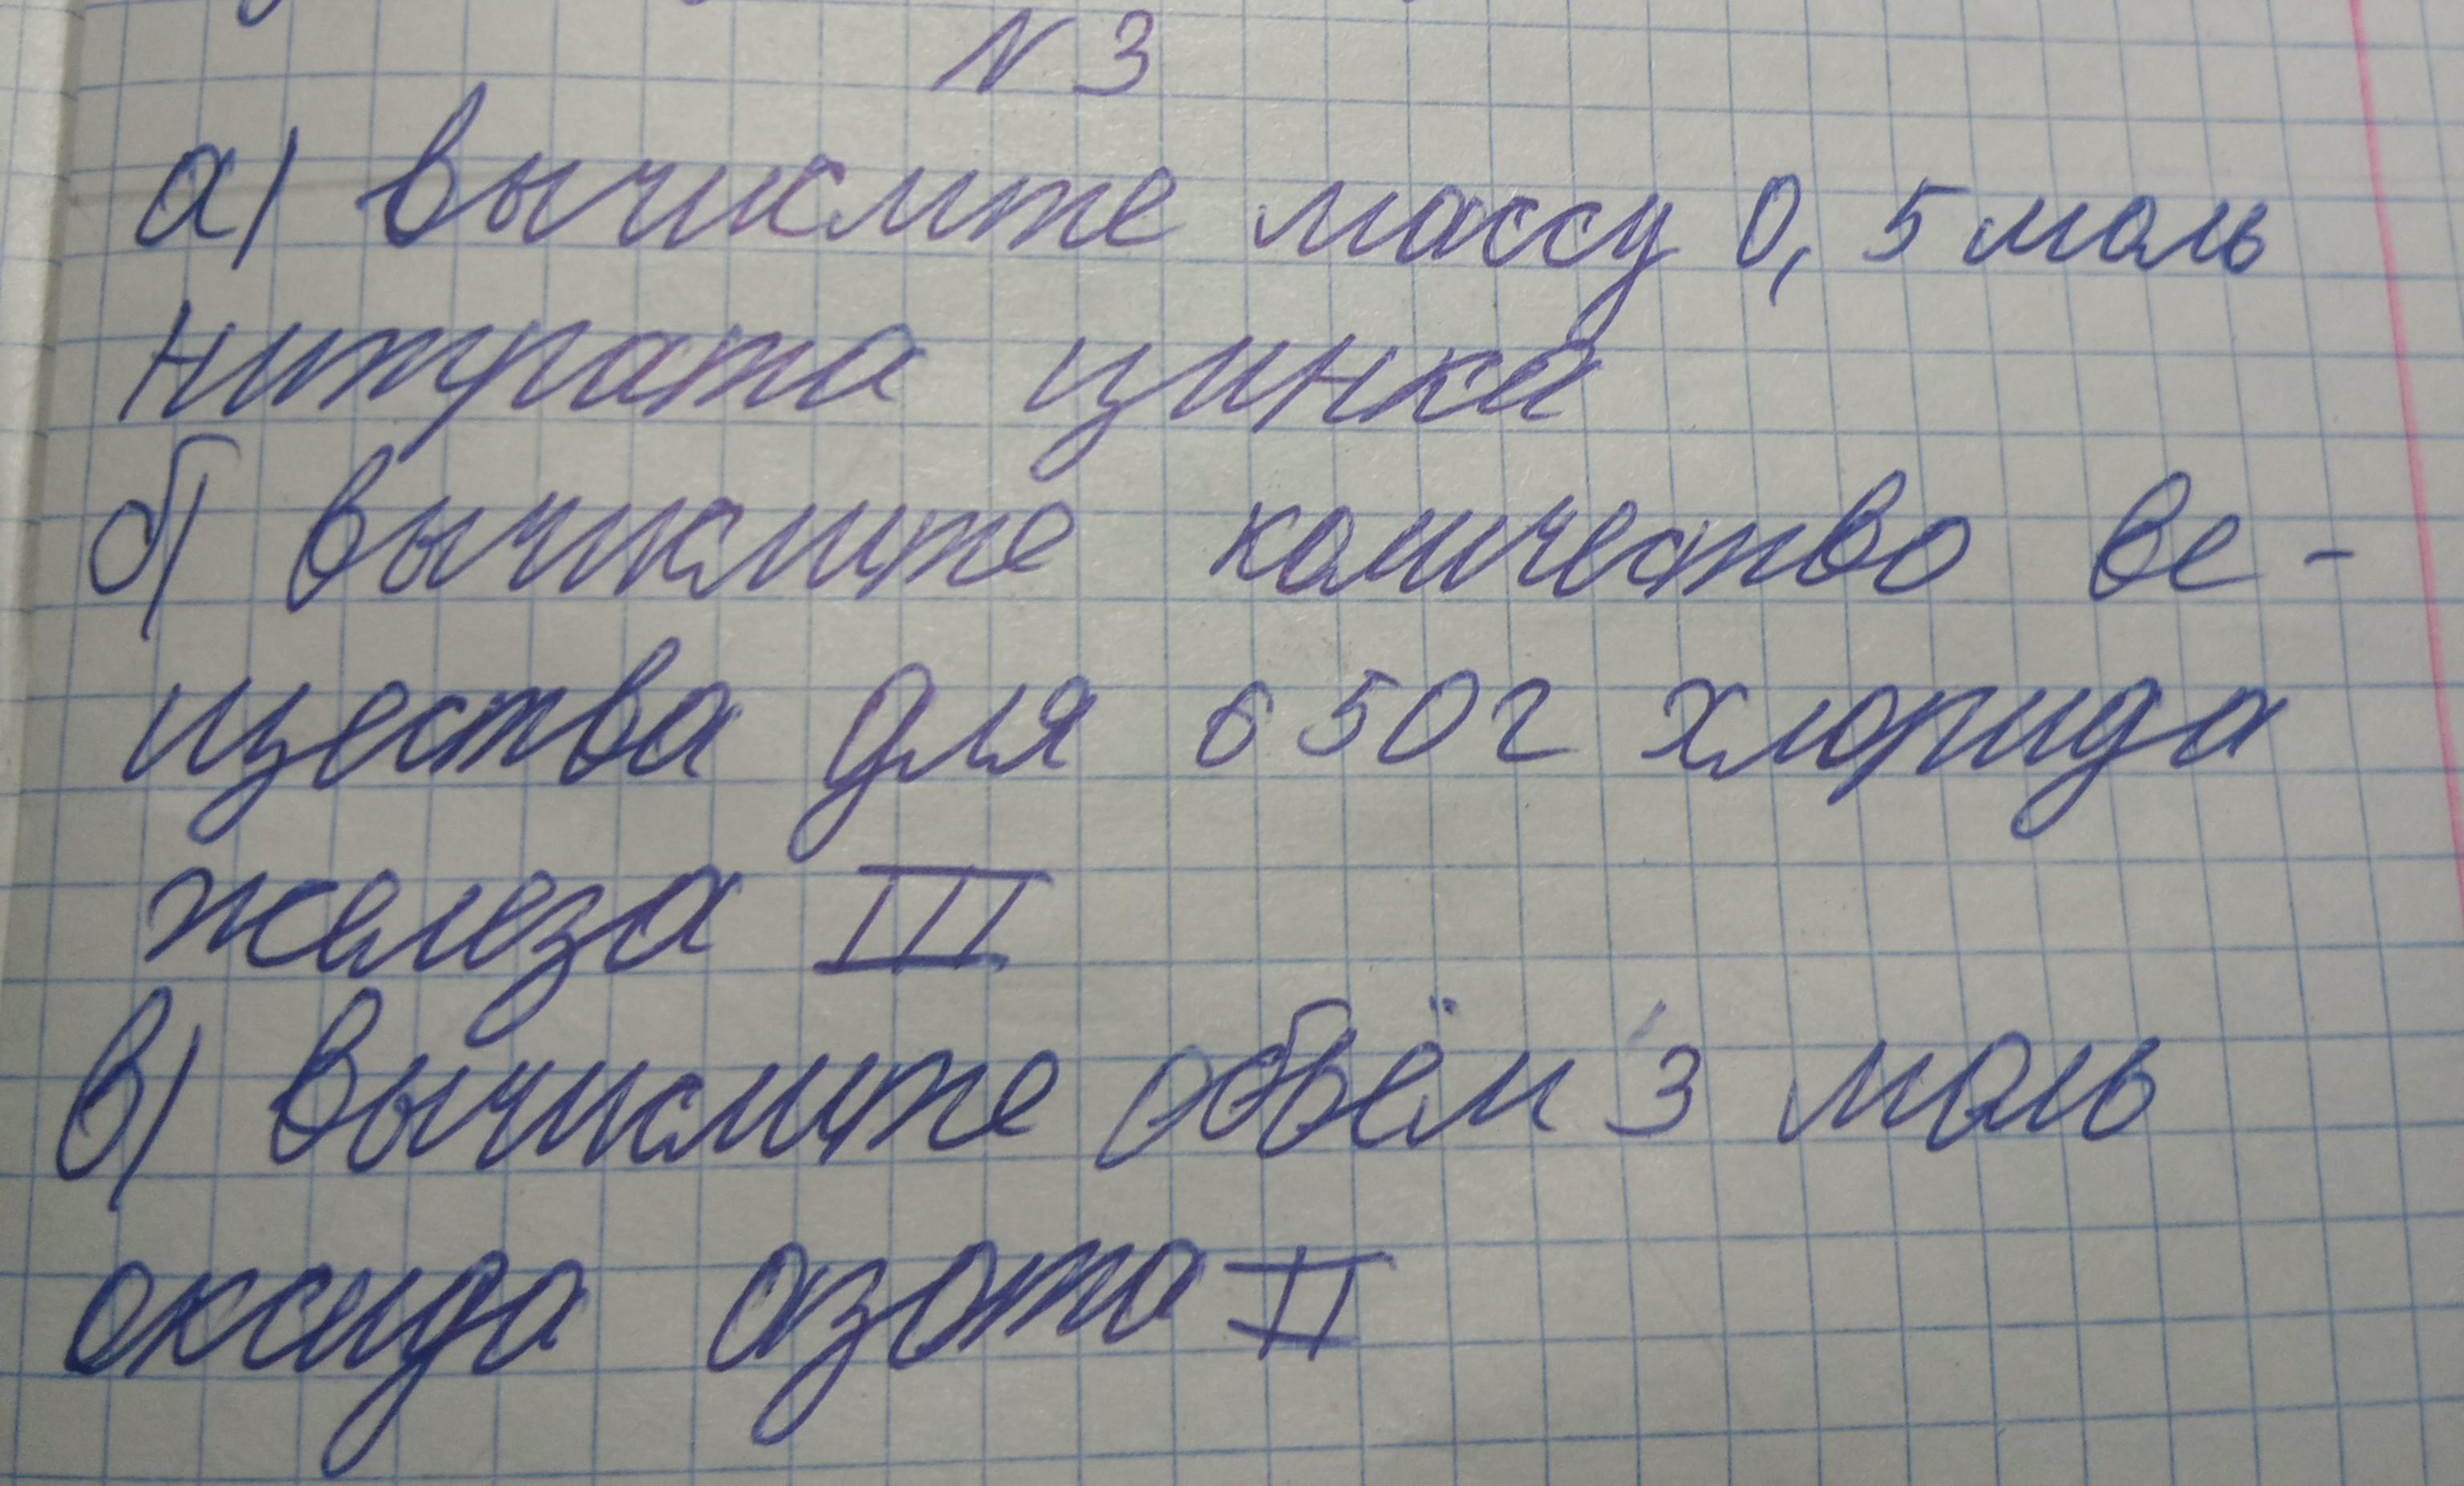 N 3
а) вычислите массу 0,5 моль
нитрата цинка
б) вычислите количество ве-
щества для 650г хлорида
железа III
в) вычислите объём 3 моль
оксида азота II